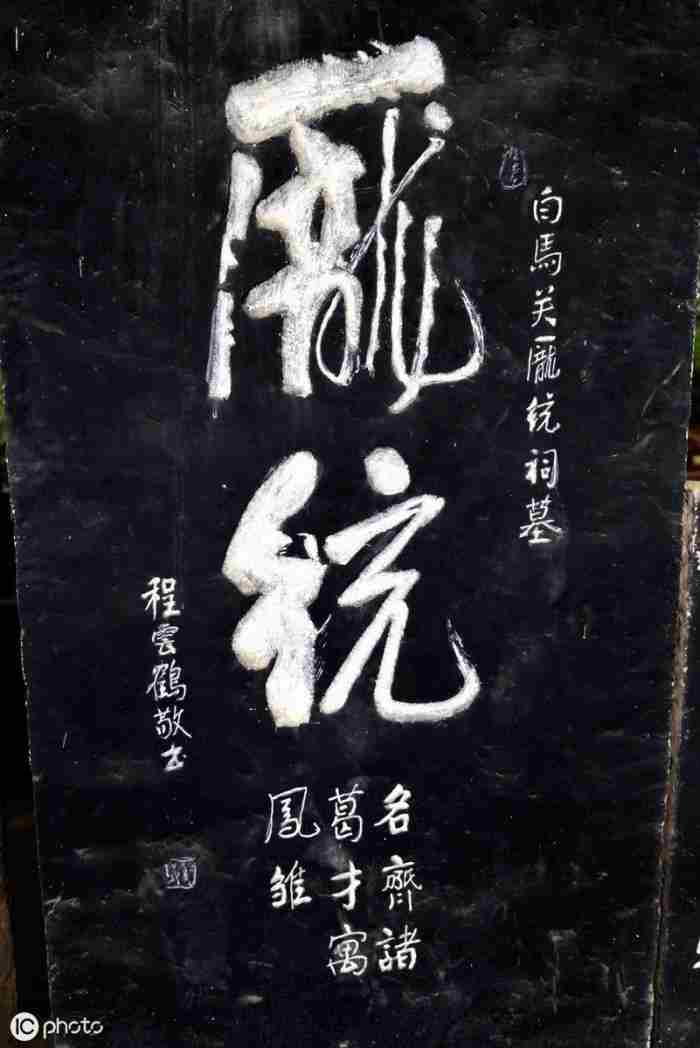 白馬关龎統祠墓
龎統
名齊諸
葛才寓
鳳雏
程雲鶴敬书
IC photo